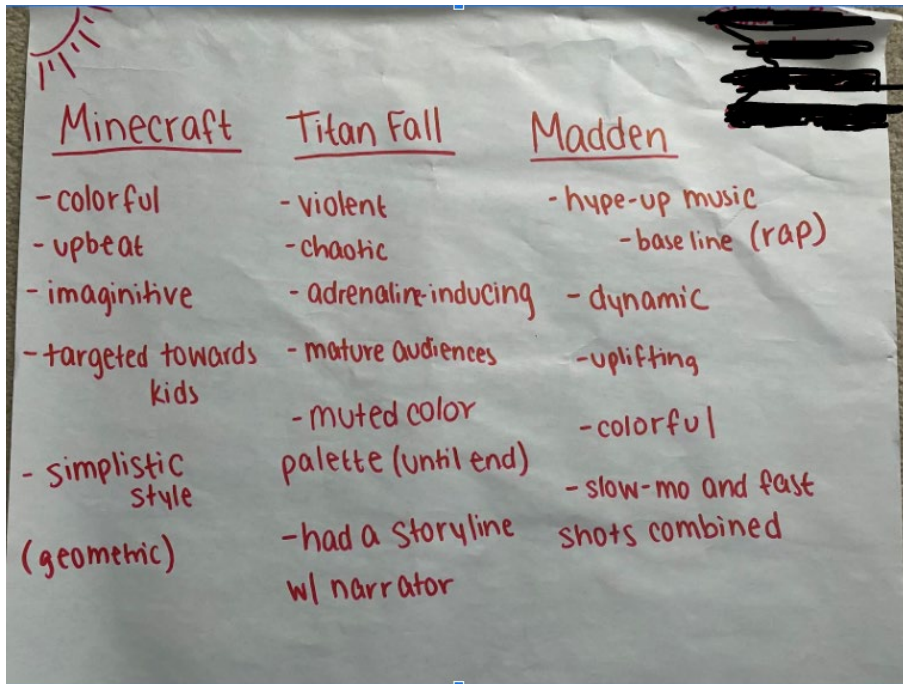 Minecraft
- colorful
- upbeat
- imaginitive
- targeted towards
kids
- simplistic
style
(geometric)
Titan Fall
- violent
- chaotic
- adrenaline-inducing
- mature audiences
- muted color
palette (until end)
- had a storyline
w/ narrator
Madden
- hype-up music
- base line (rap)
- dynamic
- uplifting
- colorful
- slow-mo and fast
shots combined